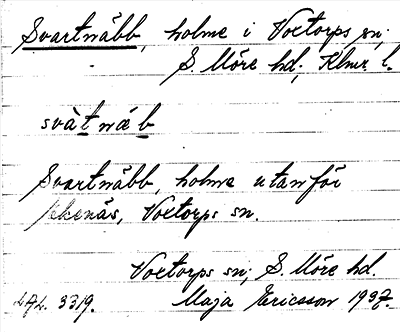 Svartnäbb, holme i Voxtorps sn,
S. Möre hd, Klmr l.
svàt nä b
Svartnäbb, holme utanför
Ekenäs, Voxtorps sn.
Voxtorps sn, S. Möre hd.
3319. Maja Ericsson 1937.